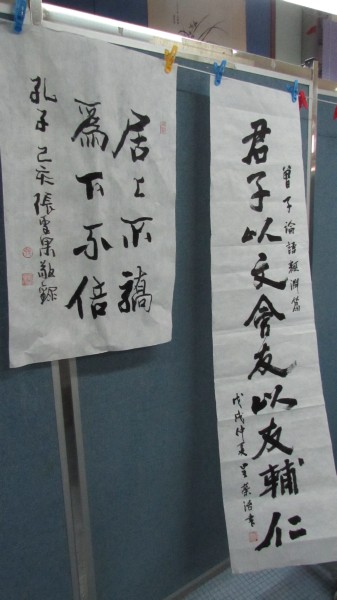 曾子論語顏淵篇
君子以文會友以友輔仁
戊戌仲夏
居上不驕
為下不倍
孔子 己亥 張雪果敬錄